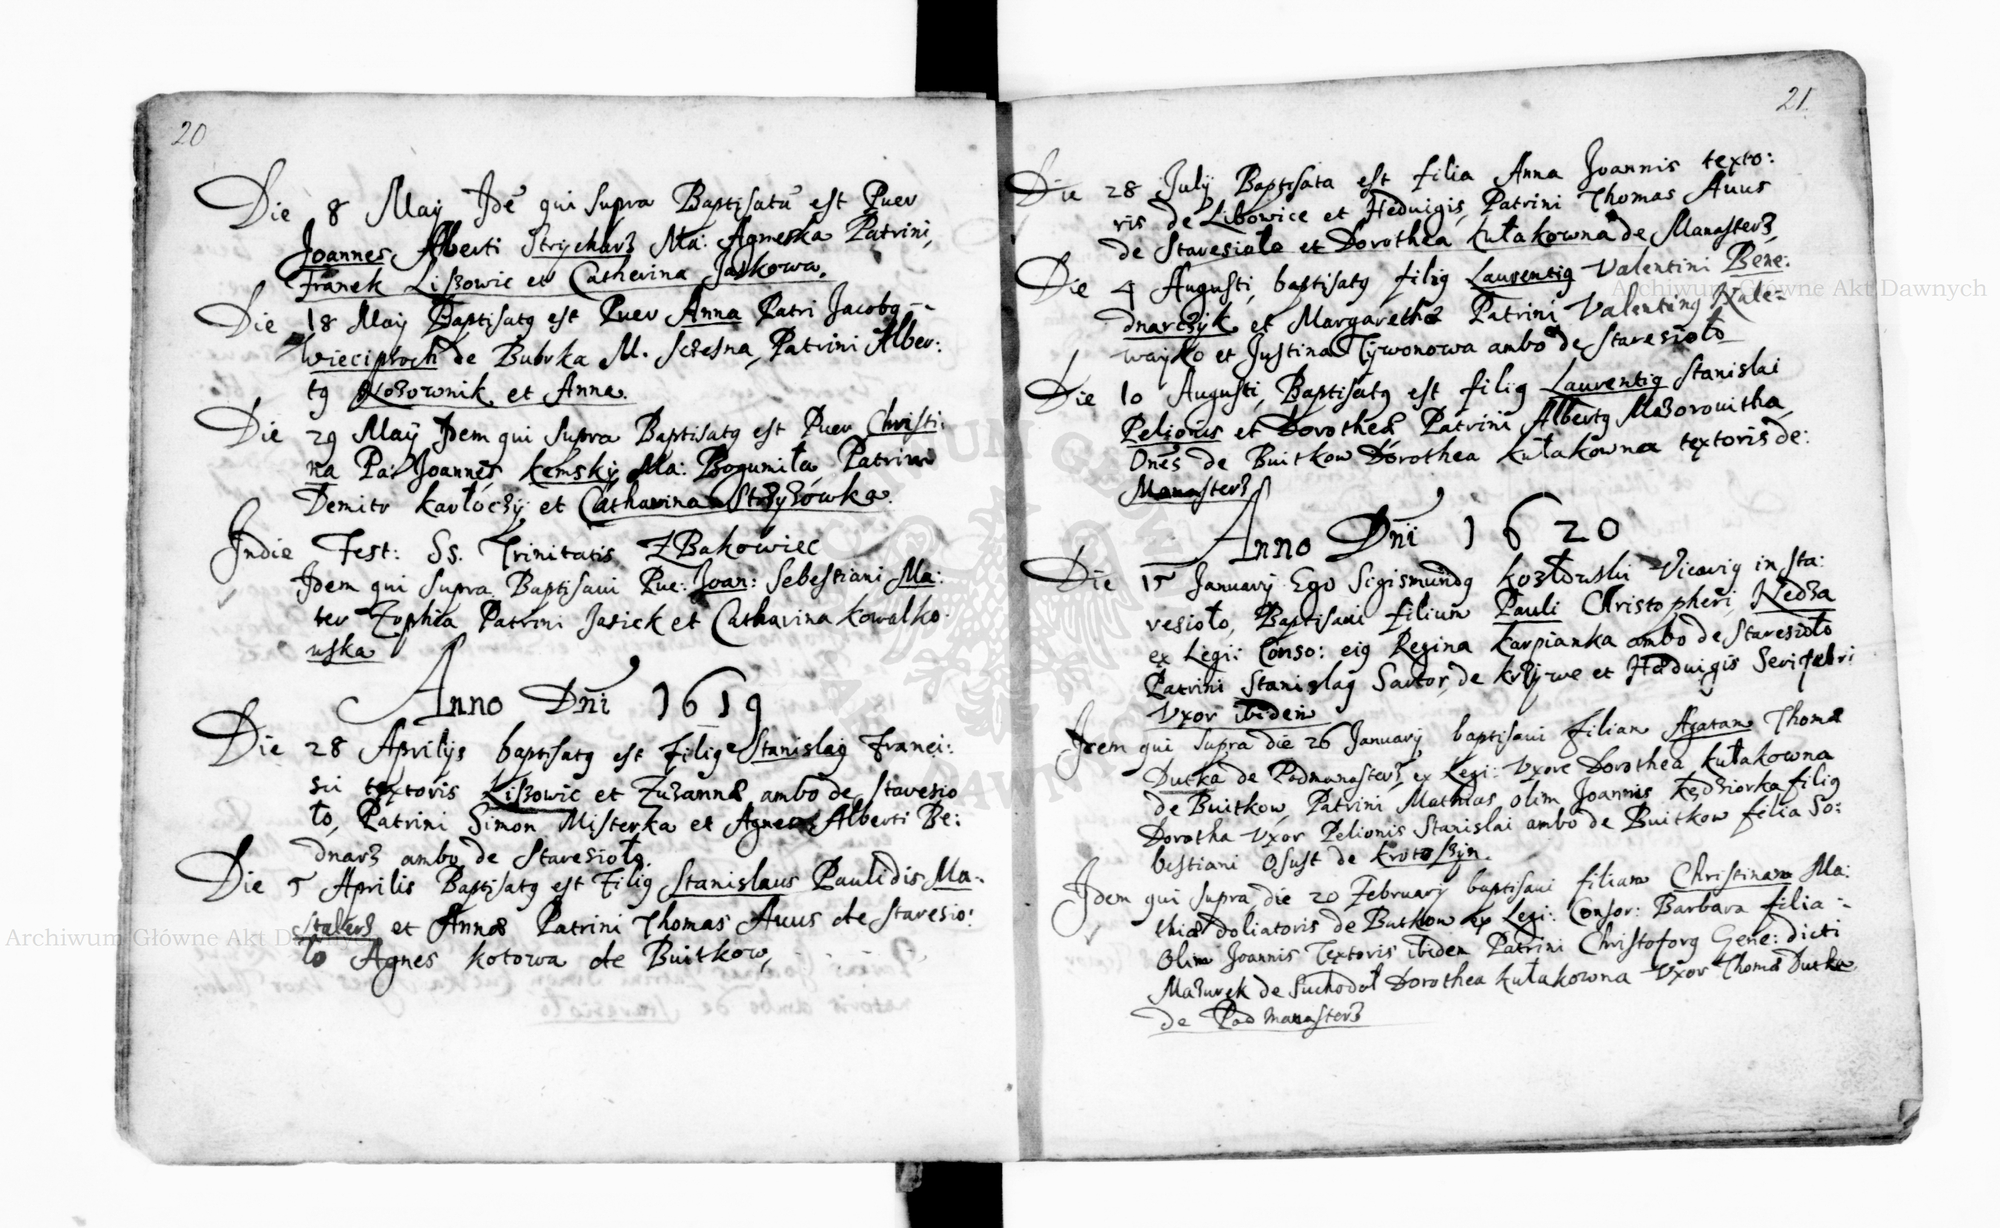 20
Die 8 Maÿ Idē qui supra Baptisatū est Puer
Joannes Alberti Strÿcharz Ma: Agneska Patrini,
Franek Liszowic et Catherina Jaskowa.
Die 18 Maÿ Baptisatꝯ est Puer Anna Patri Jacobꝯ
Wieciploch de Bubrka M. Sczesna, Patrini Alber:
tꝯ Kozownik et Anna.
Die 29 Maÿ Idem qui supra Baptisatꝯ est Puer Christi:
na Pa: Joannes kemskÿ Ma: Bogumiła Patrini
Demitr karłoczÿ et Catharina
Indie Fest: SS. Trinitatis ZBakowiec
Idem qui supra Baptisaui Pue: Joan: Sebestiani Ma:
ter Zophia Patrini Jasiek et Catharina kowalko:
uska
Anno Dñi 1619
Die 28 Aprilÿs baptisatꝯ est Filiꝯ Stanislaꝯ Franci:
sci textoris Liszowic et Zuzannæ ambo de staresio
ło, Patrini Simon Misterka et Agnes Alberti Be:
dnarz ambo de Staresioło.
Die 5 Aprilis Baptisatꝯ est Filiꝯ Stanislaus Paulidis Ma-
stalerz et Annæ Patrini Thomas Auus de staresio:
ło Agnes kotowa de Buitkow,
21.
Die 28 Julÿ Baptisata est filia Anna Joannis texto:
ris de Libowice et Heduigis, Patrini Thomas Auus
de Staresioło et Dorothea kułakowna de Manasterz
Die 4 Augusti, baptisatꝯ filiꝯ Laurentiꝯ Valentini Bene:
dnarczÿk et Margarethæ Patrini Valentinꝯ Kale-
waÿko et Justina Tÿwonowa ambo de staresioło
Die 10 Augusti, Baptisatꝯ est filiꝯ Laurentiꝯ Stanislai
Pelionis et Dorotheæ Patrini Albertꝯ Mazorouitha
de Buitkow Dorothea kułakowna textoris de:
Manasterz
Anno Dñi 1620
Die 15 Januarÿ Ego Sigismundꝯ kozłowski Vicariꝯ in sta:
resioło, Baptisaui filium Pauli Christopheri, Nedza
ex Legi: Conso: eiꝯ Regina karpianka ambo de Staresioło
Patrini Stanislaꝯ Sartor, de et Heduigis
Vxor ibidem
Idem qui supra die 26 Januarÿ, baptisaui filiam Agatam Thomæ
Dutka de Podmanasterz, ex Legi: Vxore Dorothea kułakowna
de Buitkow, Patrini Mathias olim Joannis kędziorka filiꝯ
Dorotha Vxor Pelionis Stanislai ambo de Buitkow filia So:
bestiani Osust de krotoszÿn.
Idem qui supra, die 20 Februarÿ baptisaui filiam Christinam Ma:
thiæ doliatoris de Butkow ex Legi: Consor: Barbara filia
olim Joannis Textoris ibidem Patrini Christoforꝯ Gene: dicti
Mazurek de Suchodoł Dorothea kułakowna Vxor Thomæ Dutka
de Pod Manasterz
Archiwum Główne Akt Dawnych
Archiwum Główne Akt Dawnych
ARCHIWUM GŁÓWNE AKT DAWNYCH